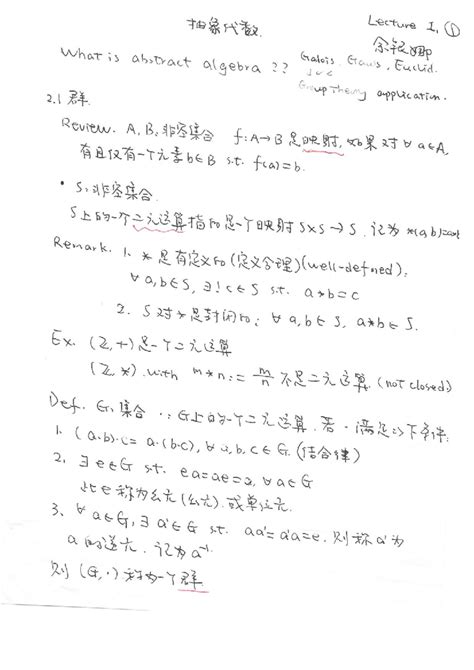 抽象代数.
Lecture 1, ①
余银娜
What is abstract algebra ?? Galois, Gauss, Euclid.
Group Theory application.
2.1 群.
Review. A, B, 非空集合 f: A→B 是映射, 如果对 ∀ a∈A,
有且仅有一个元素 b∈B s.t. f(a)=b.
• S: 非空集合.
S上的一个二元运算指的是一个映射 S×S → S. 记为 *(a,b)=a*b
Remark. 1. * 是有定义的(定义合理)(well-defined);
∀ a,b∈S, ∃! c∈S s.t. a*b=c
2. S对*是封闭的: ∀ a,b∈S, a*b∈S.
Ex. (Z,+)是一个二元运算
(Z,*). with m*n := m/n 不是二元运算. (not closed)
Def. G: 集合 ·: G上的一个二元运算. 若·满足以下条件:
1. (a·b)·c = a·(b·c), ∀ a,b,c∈G. (结合律)
2. ∃ e∈G s.t. ea=ae=a, ∀ a∈G
此e称为幺元(么元). 或单位元.
3、∀ a∈G, ∃ a'∈G s.t. aa'=a'a=e. 则称a'为
a的逆元. 记为 a⁻¹.
则 (G,·)称为一个群